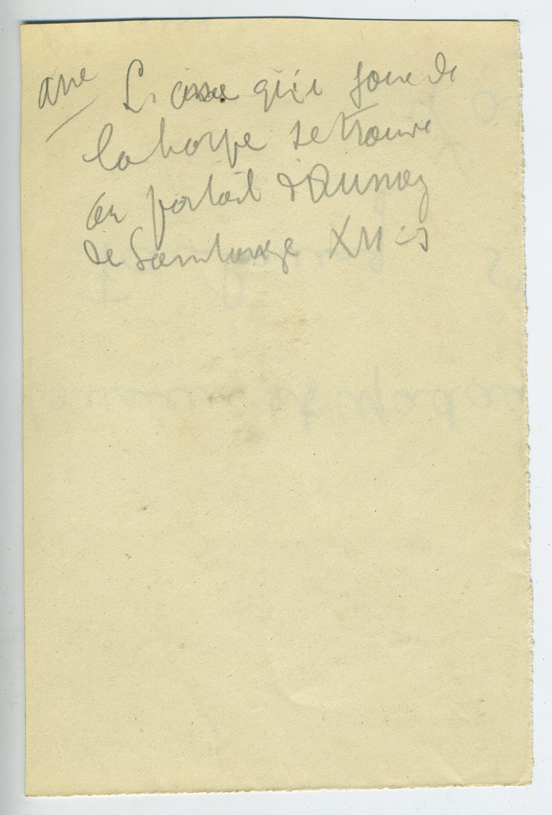 ane L'ane qui joue de
la harpe se trouve
au portail d'Aunay
de Saintonge XII e s